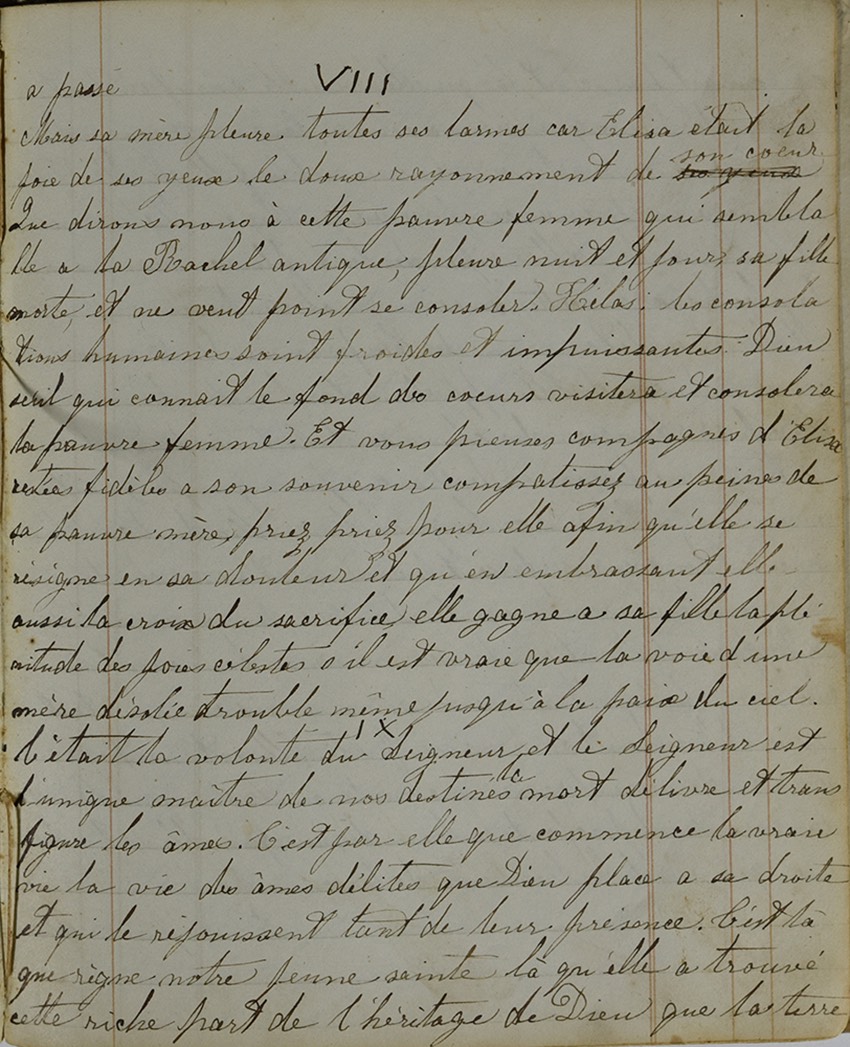 a passé
VIII
Mais sa mère pleure toutes ses larmes car Elisa était la
joie de ses yeux le doux rayonnement de son coeur ses yeux
Que dirons nous à cette pauvre femme qui sembla
ble a la Rachel antique, pleure nuit et jour, sa fille
morte, et ne veut point se consoler. Hélas! les consola
tions humaines soint froides et impuissantes. Dieu
seul qui connait le fond des coeurs visitera et consolera
la pauvre femme. Et vous pieuses compagnes d'Elisa
restées fidèles a son souvenir compatissez au peines de
sa pauvre mère, priez, priez pour elle afin qu'elle se
résigne en sa douleur et qu'en embrassant elle
aussi la croix du sacrifice, elle gagne a sa fille la plé
nitude des joies célestes s'il est vraie que la voie d'une
mère désolée trouble même jusqu'à la paix du ciel.
IX
C'était la volonté du Seigneur, et le Seigneur est
l'unique maître de nos destinés la mort délivre et trans
figure les âmes. C'est par elle que commence la vraie
vie la vie des âmes délites que Dieu place a sa droite
et qui le réjouissent tant de leur présence. C'est là
que règne notre jeune sainte là qu'elle a trouvé
cette riche part de l'héritage de Dieu que la terre